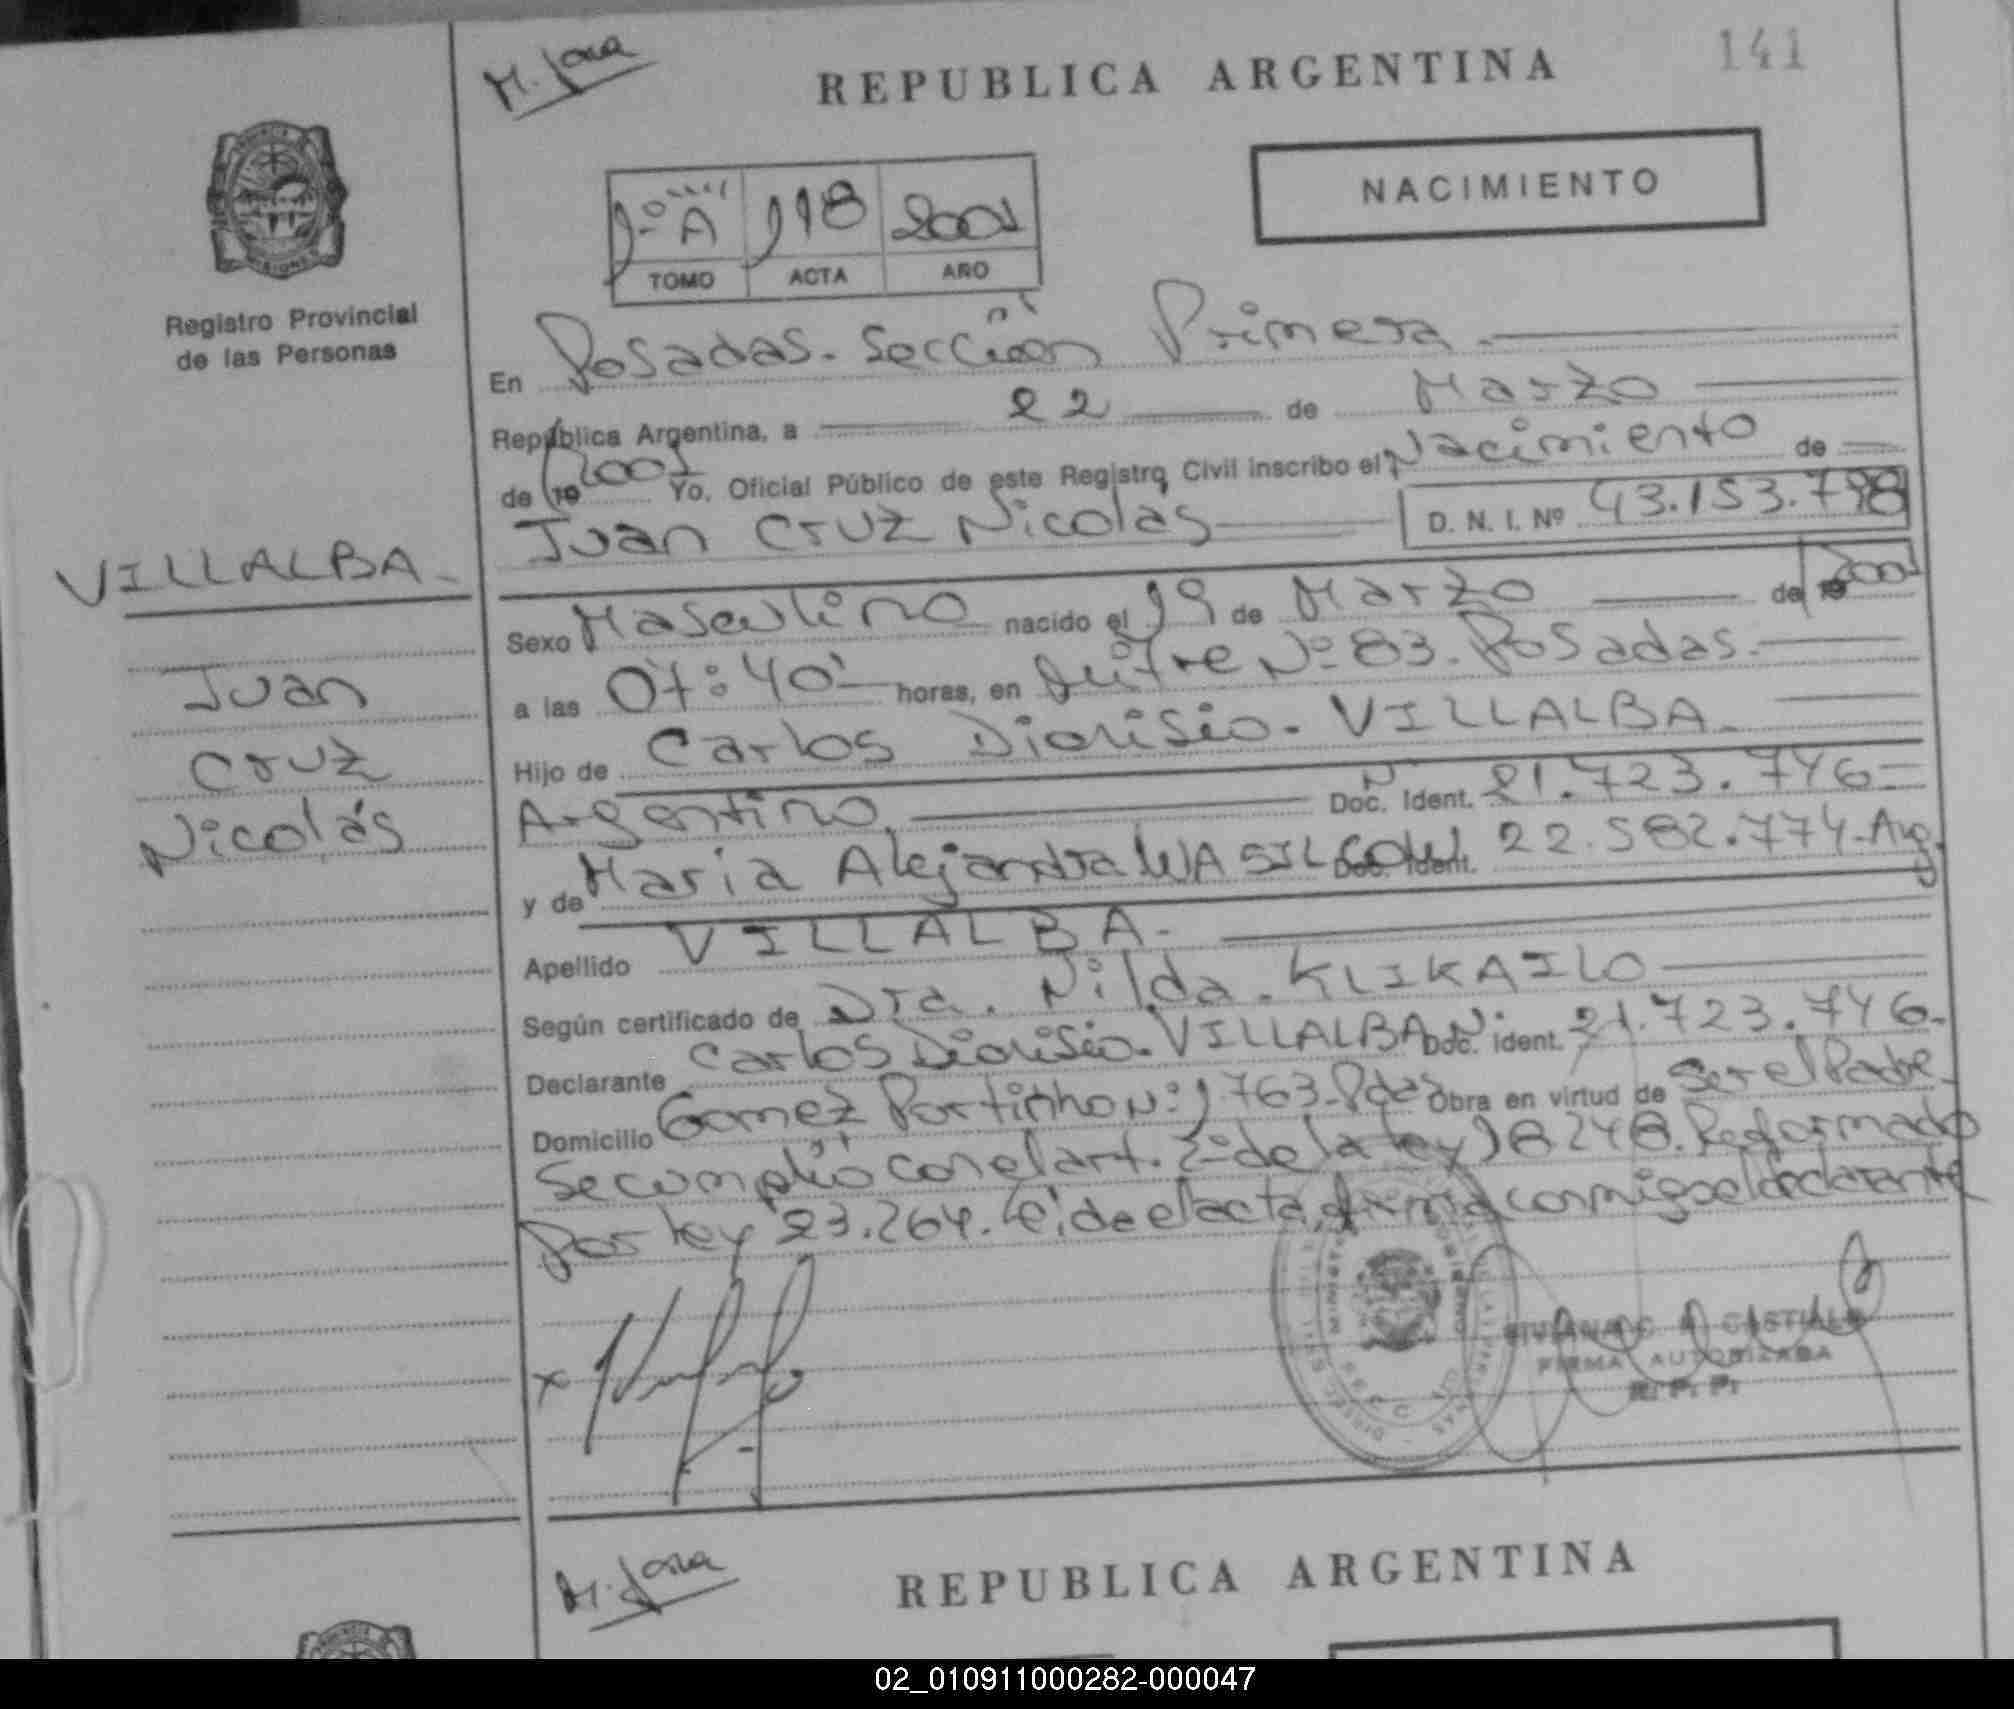 M. Jara
REPUBLICA ARGENTINA
141
NACIMIENTO
1º A 118 2001
TOMO ACTA AÑO
Registro Provincial
de las Personas
En Posadas. Sección Primera
República Argentina, a 22 de Marzo
de 19 2001 Yo, Oficial Público de este Registro Civil inscribo el Nacimiento de
Juan Cruz Nicolás D. N. I. Nº 43.153.798
VILLALBA
Juan
Cruz
Nicolás
Sexo Masculino nacido el 19 de Marzo de 19 2001
a las 07:40' horas, en Nº 83. Posadas.
Hijo de Carlos Dionisio. VILLALBA
Argentino, Doc. Ident. Nº 21.723.746
y de María Alejandra Doc. Ident. 22.582.774-Arg.
Apellido VILLALBA
Según certificado de Dra. Nilda. KLIKAILO
Declarante Carlos Dionisio. VILLALBA Doc. ident. Nº 21.723.746
Domicilio Gomez Portinho Nº 1763-Pdas Obra en virtud de Ser el Padre
Se cumplió con el art. 2º de la ley 18248. Reformado
Por ley 23.264. Leída el acta, firma conmigo el declarante
CASTILLO
FIRMA AUTORIZADA
R. P. P.
M. Jara
REPUBLICA ARGENTINA
02_010911000282-000047